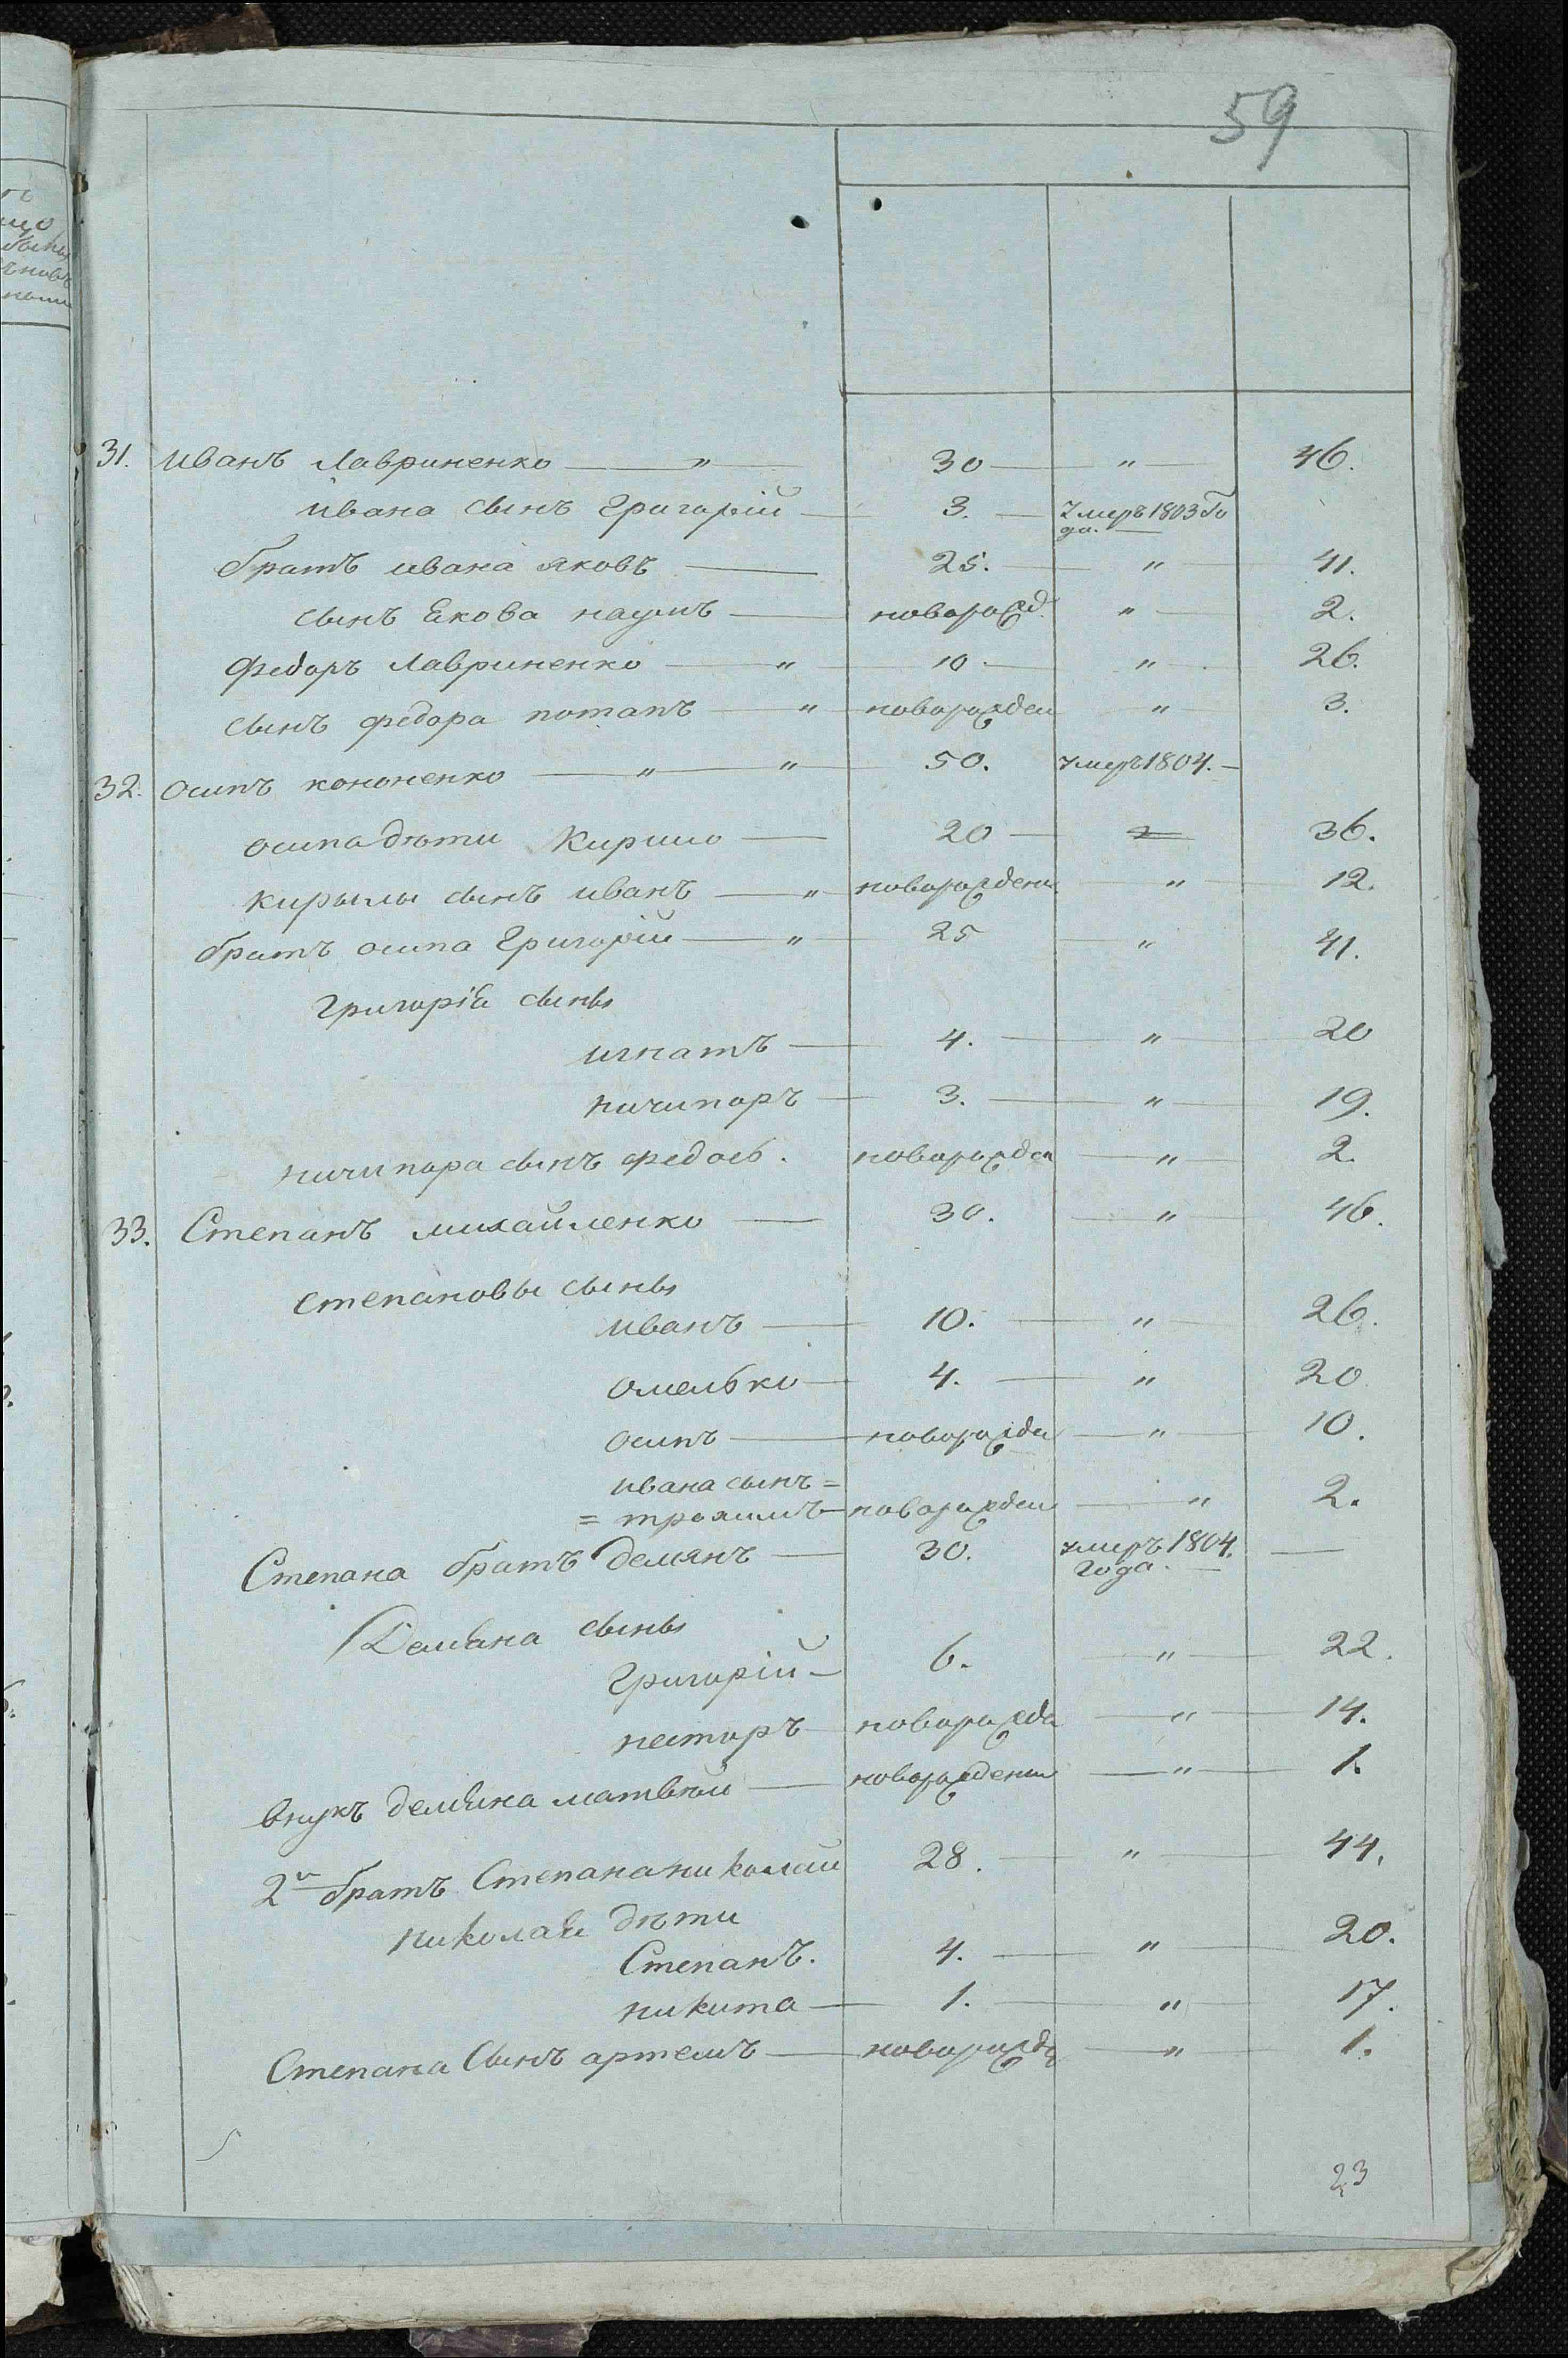 59
31. Иванъ Лавриненко — " — 30 — " — 46.
ивана сынъ Григорій — 3. — Умеръ 1803 го
да. —
братъ ивана яковъ — 25. — " — 41.
сынъ Екова наумъ — новорожд. " — 2.
Федоръ Лавриненко — " — 10 — " — 26.
сынъ федора потапъ — " — новорожден — " — 3.
32. Осипъ кононенко — " — " — 50. умеръ 1804. —
осипа дѣти Кирило — 20 — " — 36.
кирылы сынъ иванъ — " — новорожденн — " — 12.
братъ осипа Григорій — " — 25 — " — 41.
Григоріа сыны
игнатъ — 4. — " — 20
ничипоръ — 3. — " — 19.
ничипора сынъ федось. новорожден — " — 2.
33. Степанъ михайленко — 30. — " — 46.
степановы сыны
иванъ — 10. — " — 26.
омелько — 4. — " — 20
осипъ — новорожде — " — 10.
ивана сынъ =
= трохимъ — новорожден — " — 2.
Степана братъ демянъ — 30. умеръ 1804.
года. — —
Демена сыны
Григорій — 6. — " — 22.
несторъ — новорожде — " — 14.
внукъ демена матвѣй — новорожденн — " — 1.
2й братъ Степана николай 28. — " — 44.
николае дѣти
Степанъ. 4. — " — 20.
никита — 1. — " — 17.
Степана Сынъ артемъ — новорожде — " — 1.
23